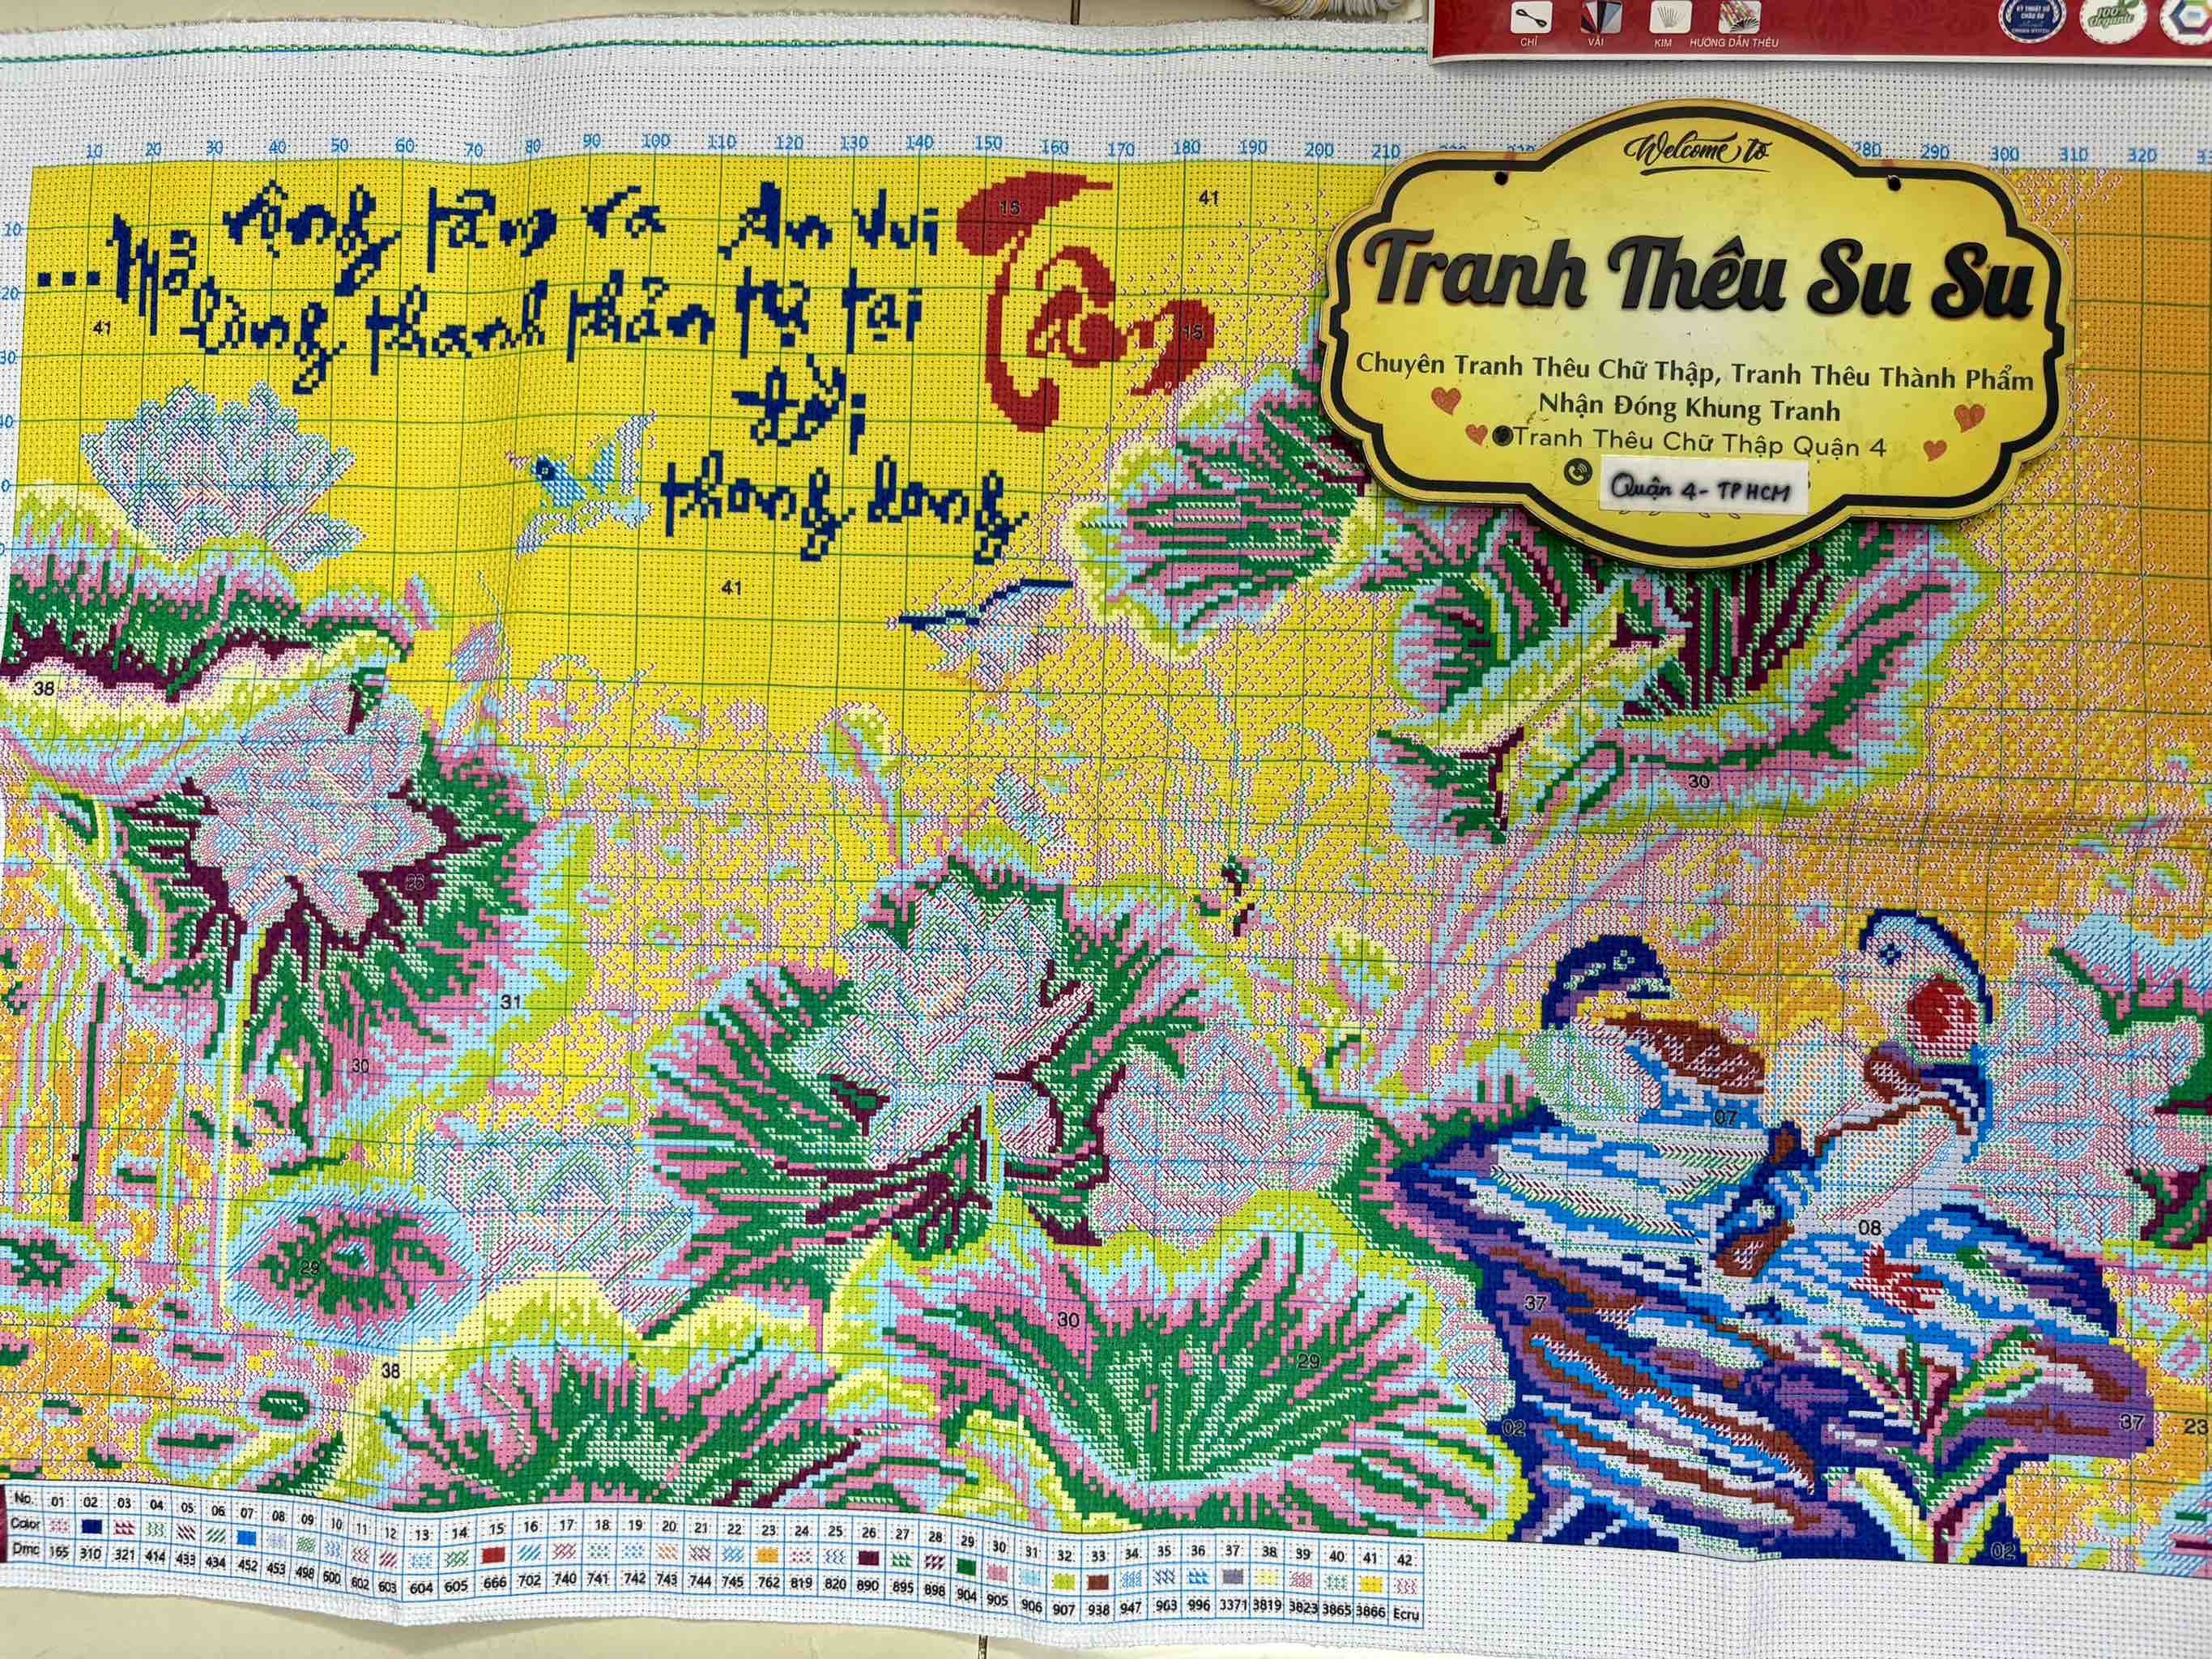 CHỈ VẢI KIM HƯỚNG DẪN THÊU
KỸ THUẬT SỐ
CHÂU ÂU
100%
Organic
10 20 30 40 50 60 70 80 90 100 110 120 130 140 150 160 170 180 190 200 210 280 290 300 310 320
Welcome to
Tranh Thêu Su Su
Chuyên Tranh Thêu Chữ Thập, Tranh Thêu Thành Phẩm
Nhận Đóng Khung Tranh
Tranh Thêu Chữ Thập Quận 4
Quận 4 - TP HCM
...Mở rộng tâm ra An vui
lòng thanh thản tự tại
đời
thong dong
Tâm
10
20
30
15
15
41
41
41
38
30
31
30
29
38
30
29
07
08
37
37
02
02
23
No. 01 02 03 04 05 06 07 08 09 10 11 12 13 14 15 16 17 18 19 20 21 22 23 24 25 26 27 28 29 30 31 32 33 34 35 36 37 38 39 40 41 42
Color
Dmc 165 310 321 414 433 434 452 453 498 600 602 603 604 605 666 702 740 741 742 743 744 745 762 819 820 890 895 898 904 905 906 907 938 947 963 996 3371 3819 3823 3865 3866 Ecru